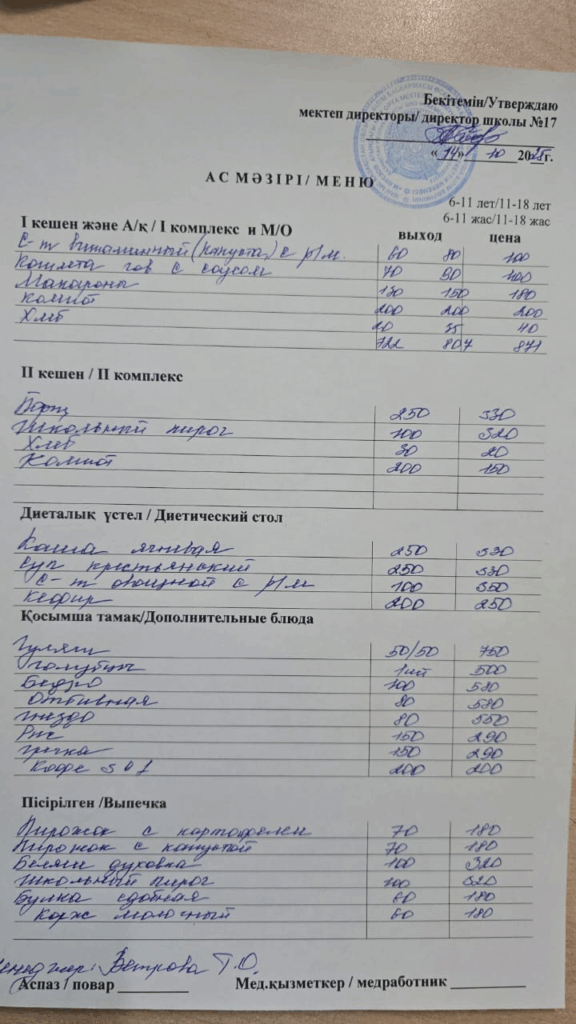 Бекітемін/Утверждаю
мектеп директоры/ директор школы №17
«14» 10 2025г.
АС МӘЗІРІ/ МЕНЮ
6-11 лет/11-18 лет
6-11 жас/11-18 жас
І кешен және А/қ / І комплекс и М/О выход цена
С-т витаминный (капуста) с р/м. 60 80 100
Котлета гов с соусом 70 80 400
Макароны 130 150 180
Компот 200 200 200
Хлеб 35 40
722 807 871
ІІ кешен / ІІ комплекс
Борщ 250 330
Школьный пирог 100 320
Хлеб 30 20
Компот 200 150
Диеталық үстел / Диетический стол
Каша ячневая 250 330
Суп крестьянский 250 330
С-т овощной с р/м 100 350
Кефир 200 250
Қосымша тамақ/Дополнительные блюда
Гуляш 50/50 750
Голубцы 1шт 500
Бедро 100 580
Отбивная 80 580
Гнездо 80 550
Рис 150 290
Гречка 150 290
Кофе 3 в 1 200 200
Пісірілген /Выпечка
Пирожок с картофелем 70 180
Пирожок с капустой 70 180
Беляш духовка 100 320
Школьный пирог 100 320
Булка сдобная 60 180
Корж молочный 60 180
Менеджер: Ветрова Т.О.
Аспаз / повар Мед.қызметкер / медработник